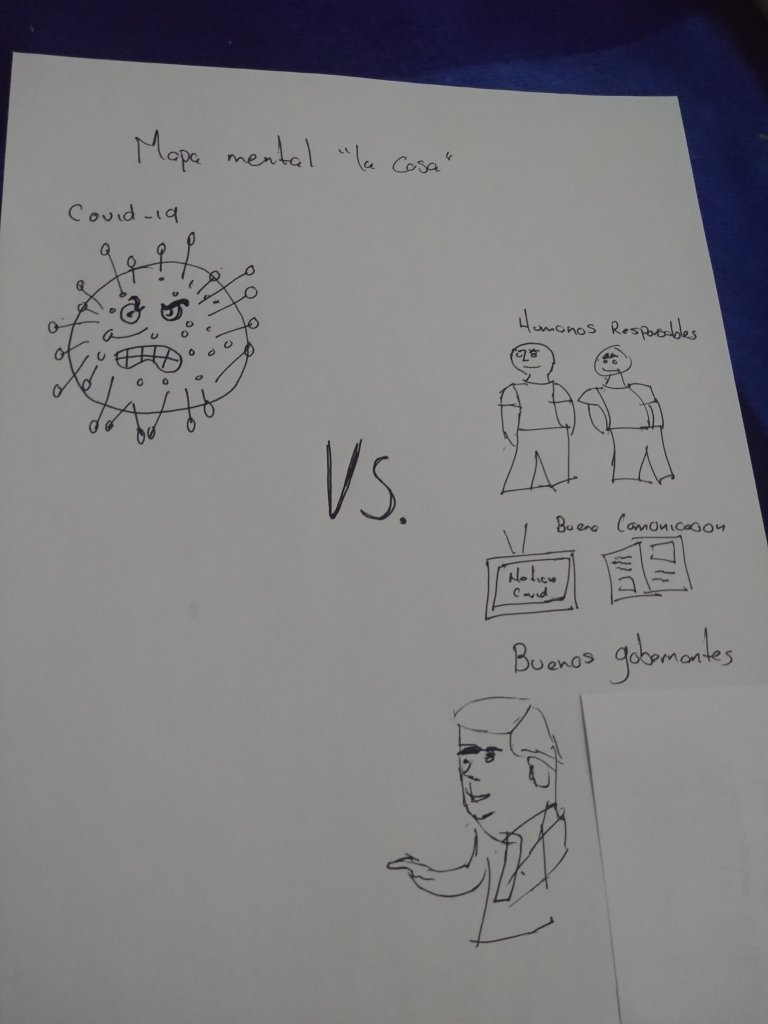 Mapa mental "la cosa"
Covid-19
VS.
Humanos Responsables
Buena Comunicacion
Noticia
Covid
Buenos gobernantes